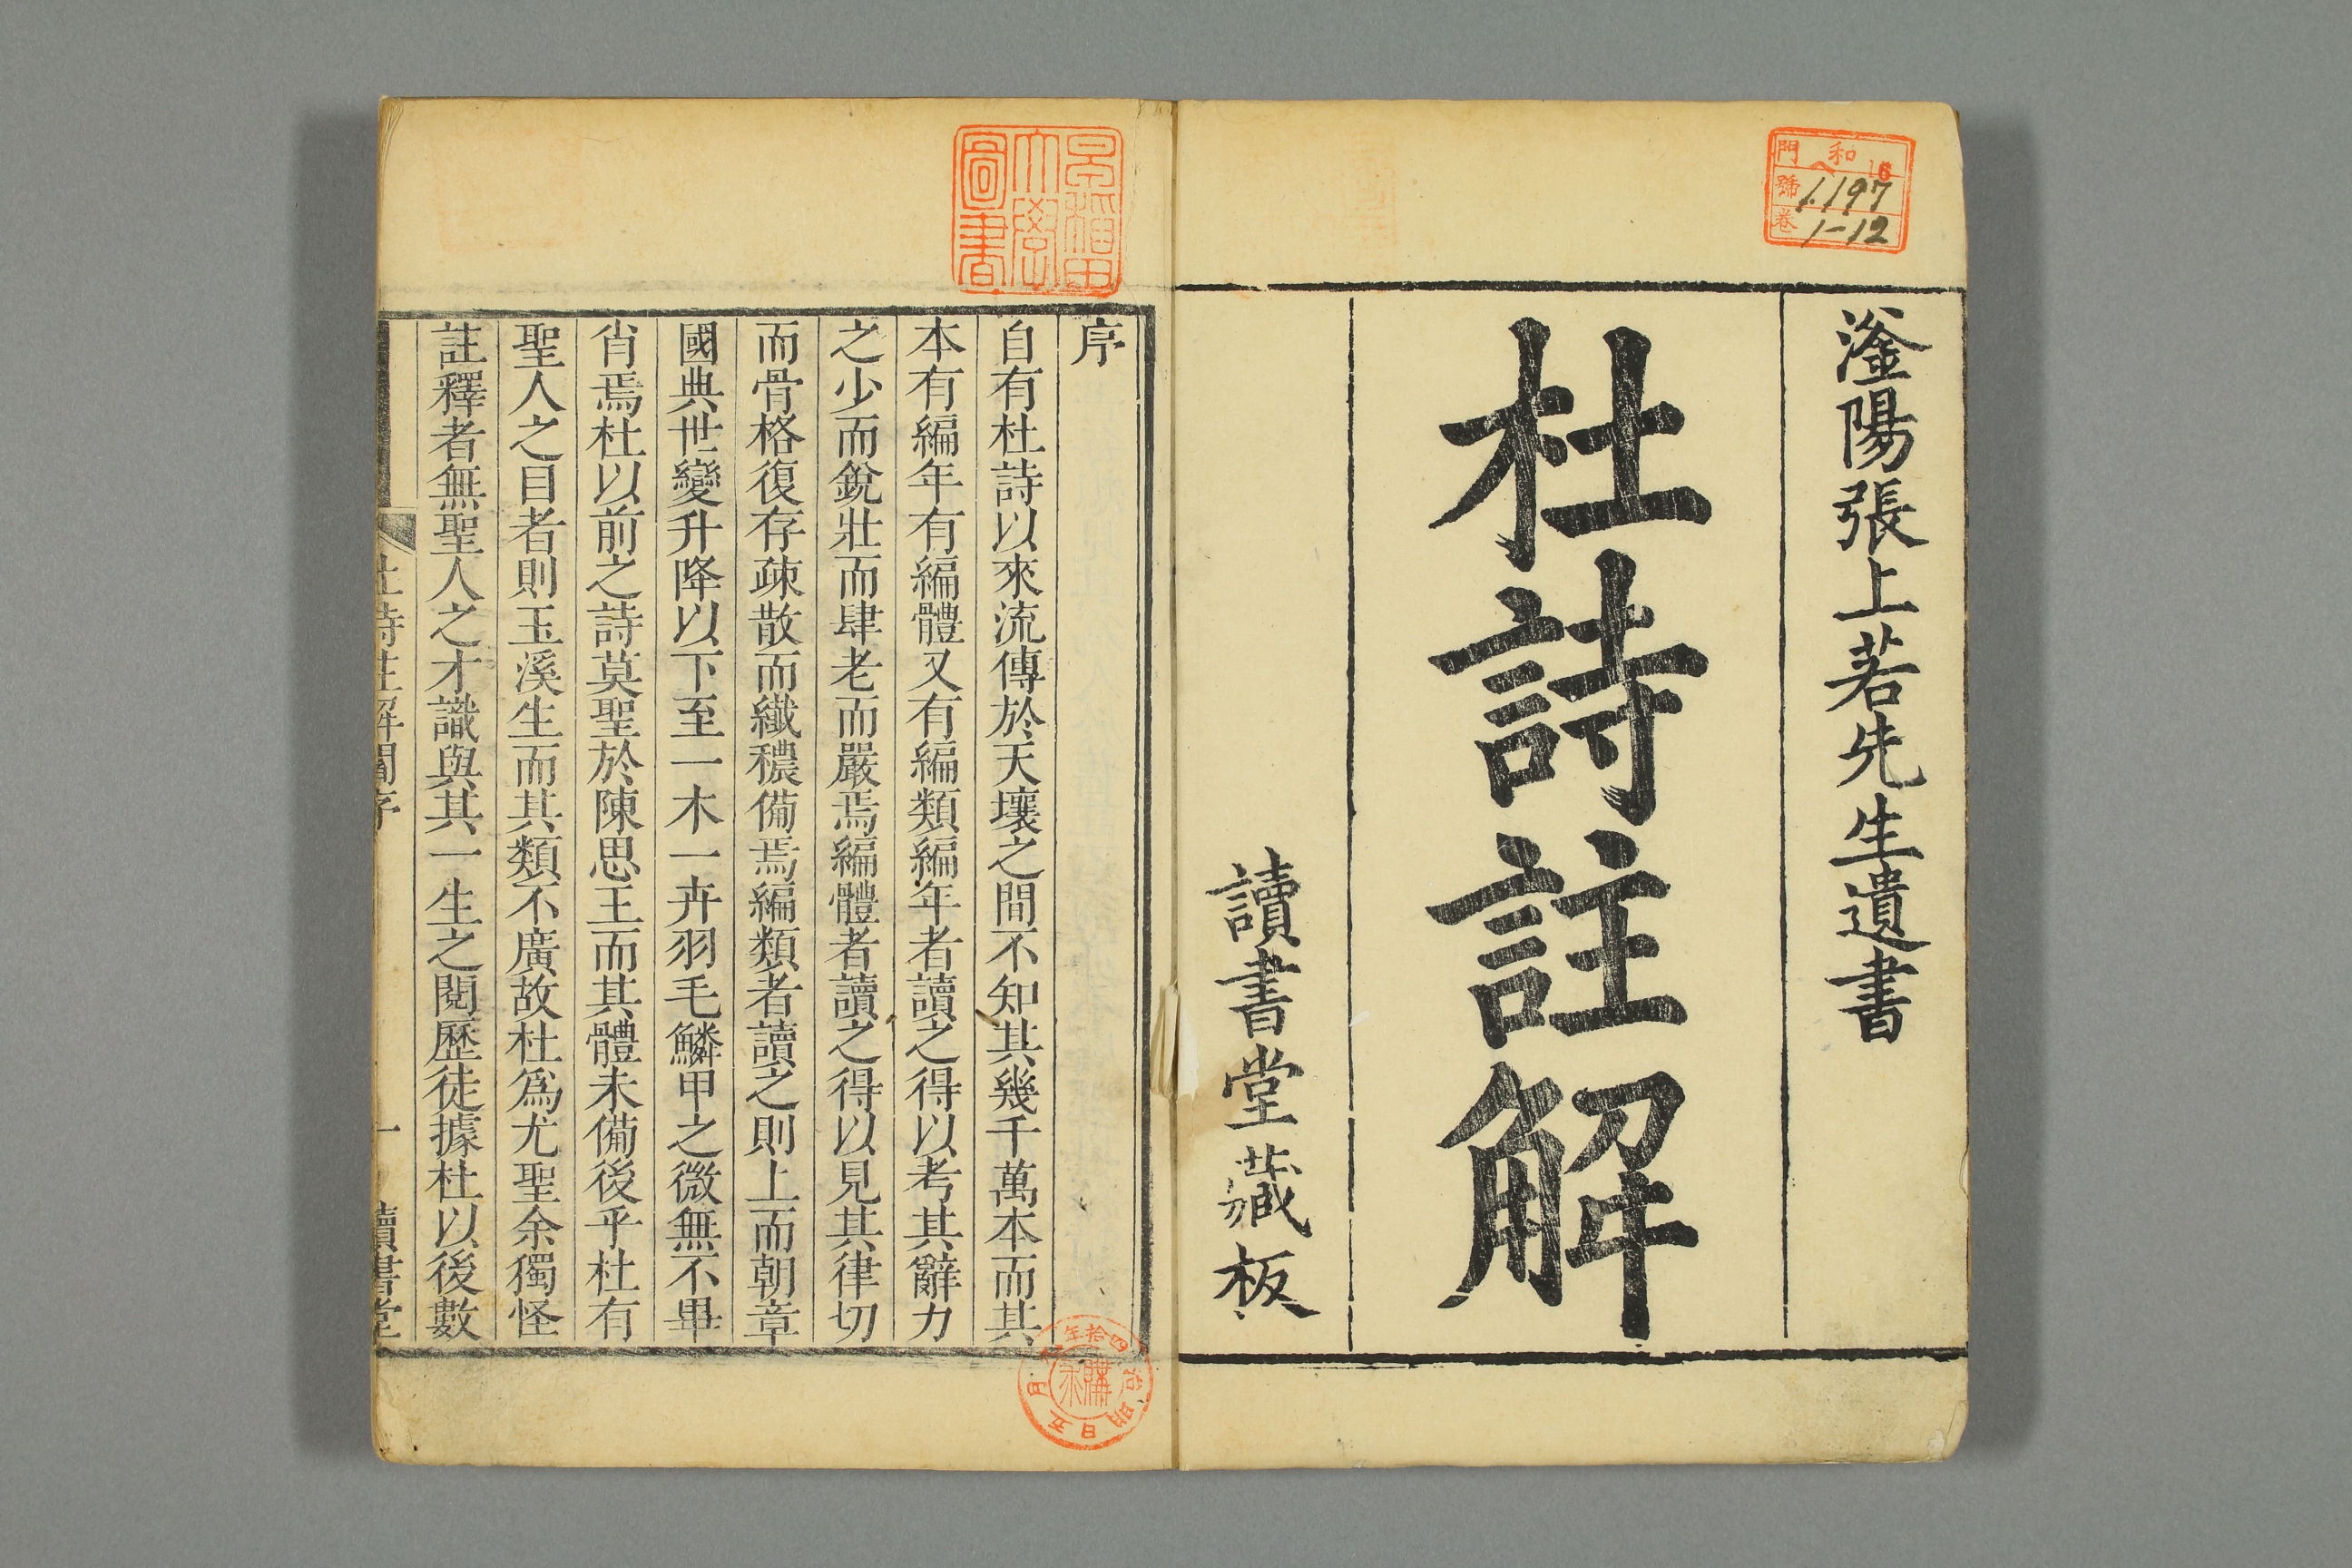 滏陽張上若先生遺書
杜詩註解
讀書堂藏板
和
門
號
卷
16
1.197
1-12
早稲田
大學
圖書
序
自有杜詩以來流傳於天壤之間不知其幾千萬本而其
本有編年有編體又有編類編年者讀之得以考其辭力
之少而銳壯而肆老而嚴焉編體者讀之得以見其律切
而骨格復存疎散而纖穠備焉編類者讀之則上而朝章
國典世變升降以下至一木一卉羽毛鱗甲之微無不畢
肖焉杜以前之詩莫聖於陳思王而其體未備後乎杜有
聖人之目者則玉溪生而其類不廣故杜爲尤聖余獨怪
註釋者無聖人之才識與其一生之閱歷徒據杜以後數
杜詩註解閻序
一
讀書堂
明治四拾年
月五日
購求